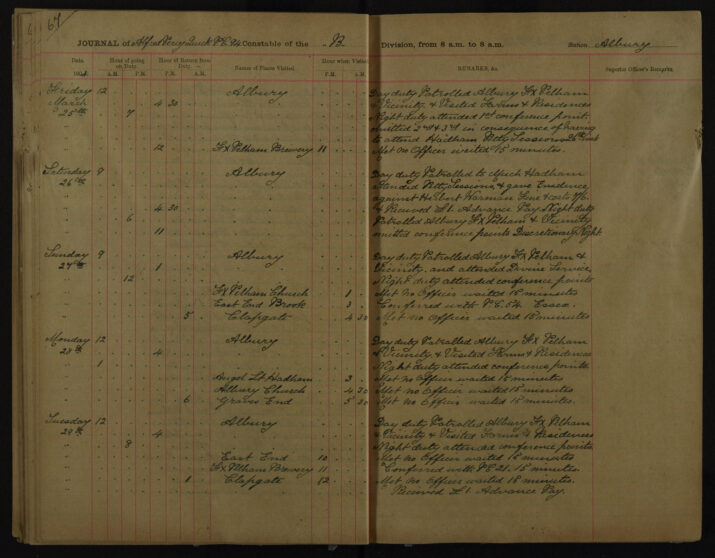 67
JOURNAL of Alfred Percy Quick P.C. 24 Constable of the B Division, from 8 a.m. to 8 a.m. Station Albury
Date Hour of going on Duty. Hour of Return from Duty. Names of Places Visited. Hour when Visited REMARKS, &c. Superior Officer's Remarks.
A.M. P.M. A.M. P.M. A.M. P.M.
Friday 12 Albury Day duty Patrolled Albury Fx Pelham
March 4 30 & Vicinity & Visited Farms & Residences
25th 7 Night duty attended 1st conference point.
omitted 2nd & 3rd in consequence of having
to attend Hadham Petty Sessions
12 Fx Pelham Brewery 11 Met no Officer waited 15 minutes.
Saturday 9 Albury Day duty Patrolled to Much Hadham
26th Attended Petty Sessions, & gave Evidence
against Herbert Warman Fine & costs
4 30 & Received £1. Advance Pay. Night duty
6 Patrolled Albury Fx Pelham & Vicinity
11 omitted conference points Discretionary Night
Sunday 9 Albury Day duty Patrolled Albury Fx Pelham &
27th 1 Vicinity, and attended Divine Service,
12 Night duty attended conference points
Fx Pelham Church 1 Met no Officer waited 15 minutes
East End Brook 3 Conferred with P.C. 54 Essex.
5 Clapgate 4 30 Met no Officer waited 15 minutes
Monday 12 Albury Day duty Patrolled Albury Fx Pelham
28th 4 & Vicinity, & Visited Farms & Residences
1 Night duty attended conference points.
Angel Lt Hadham 3 Met no Officer waited 15 minutes.
Albury Church 4 30 Met no Officer waited 15 minutes.
6 Graves End 5 30 Met no Officer waited 15 minutes.
Tuesday 12 Albury Day duty Patrolled Albury Fx Pelham
29th 4 & Vicinity & Visited Farms & Residences
8 Night duty attended conference points,
East End 10 Met no Officer waited 15 minutes
Fx Pelham Brewery 11 Conferred with P.C. 21. 15 minutes.
1 Clapgate 12 Met no Officer waited 15 minutes.
Received £1. Advance Pay.